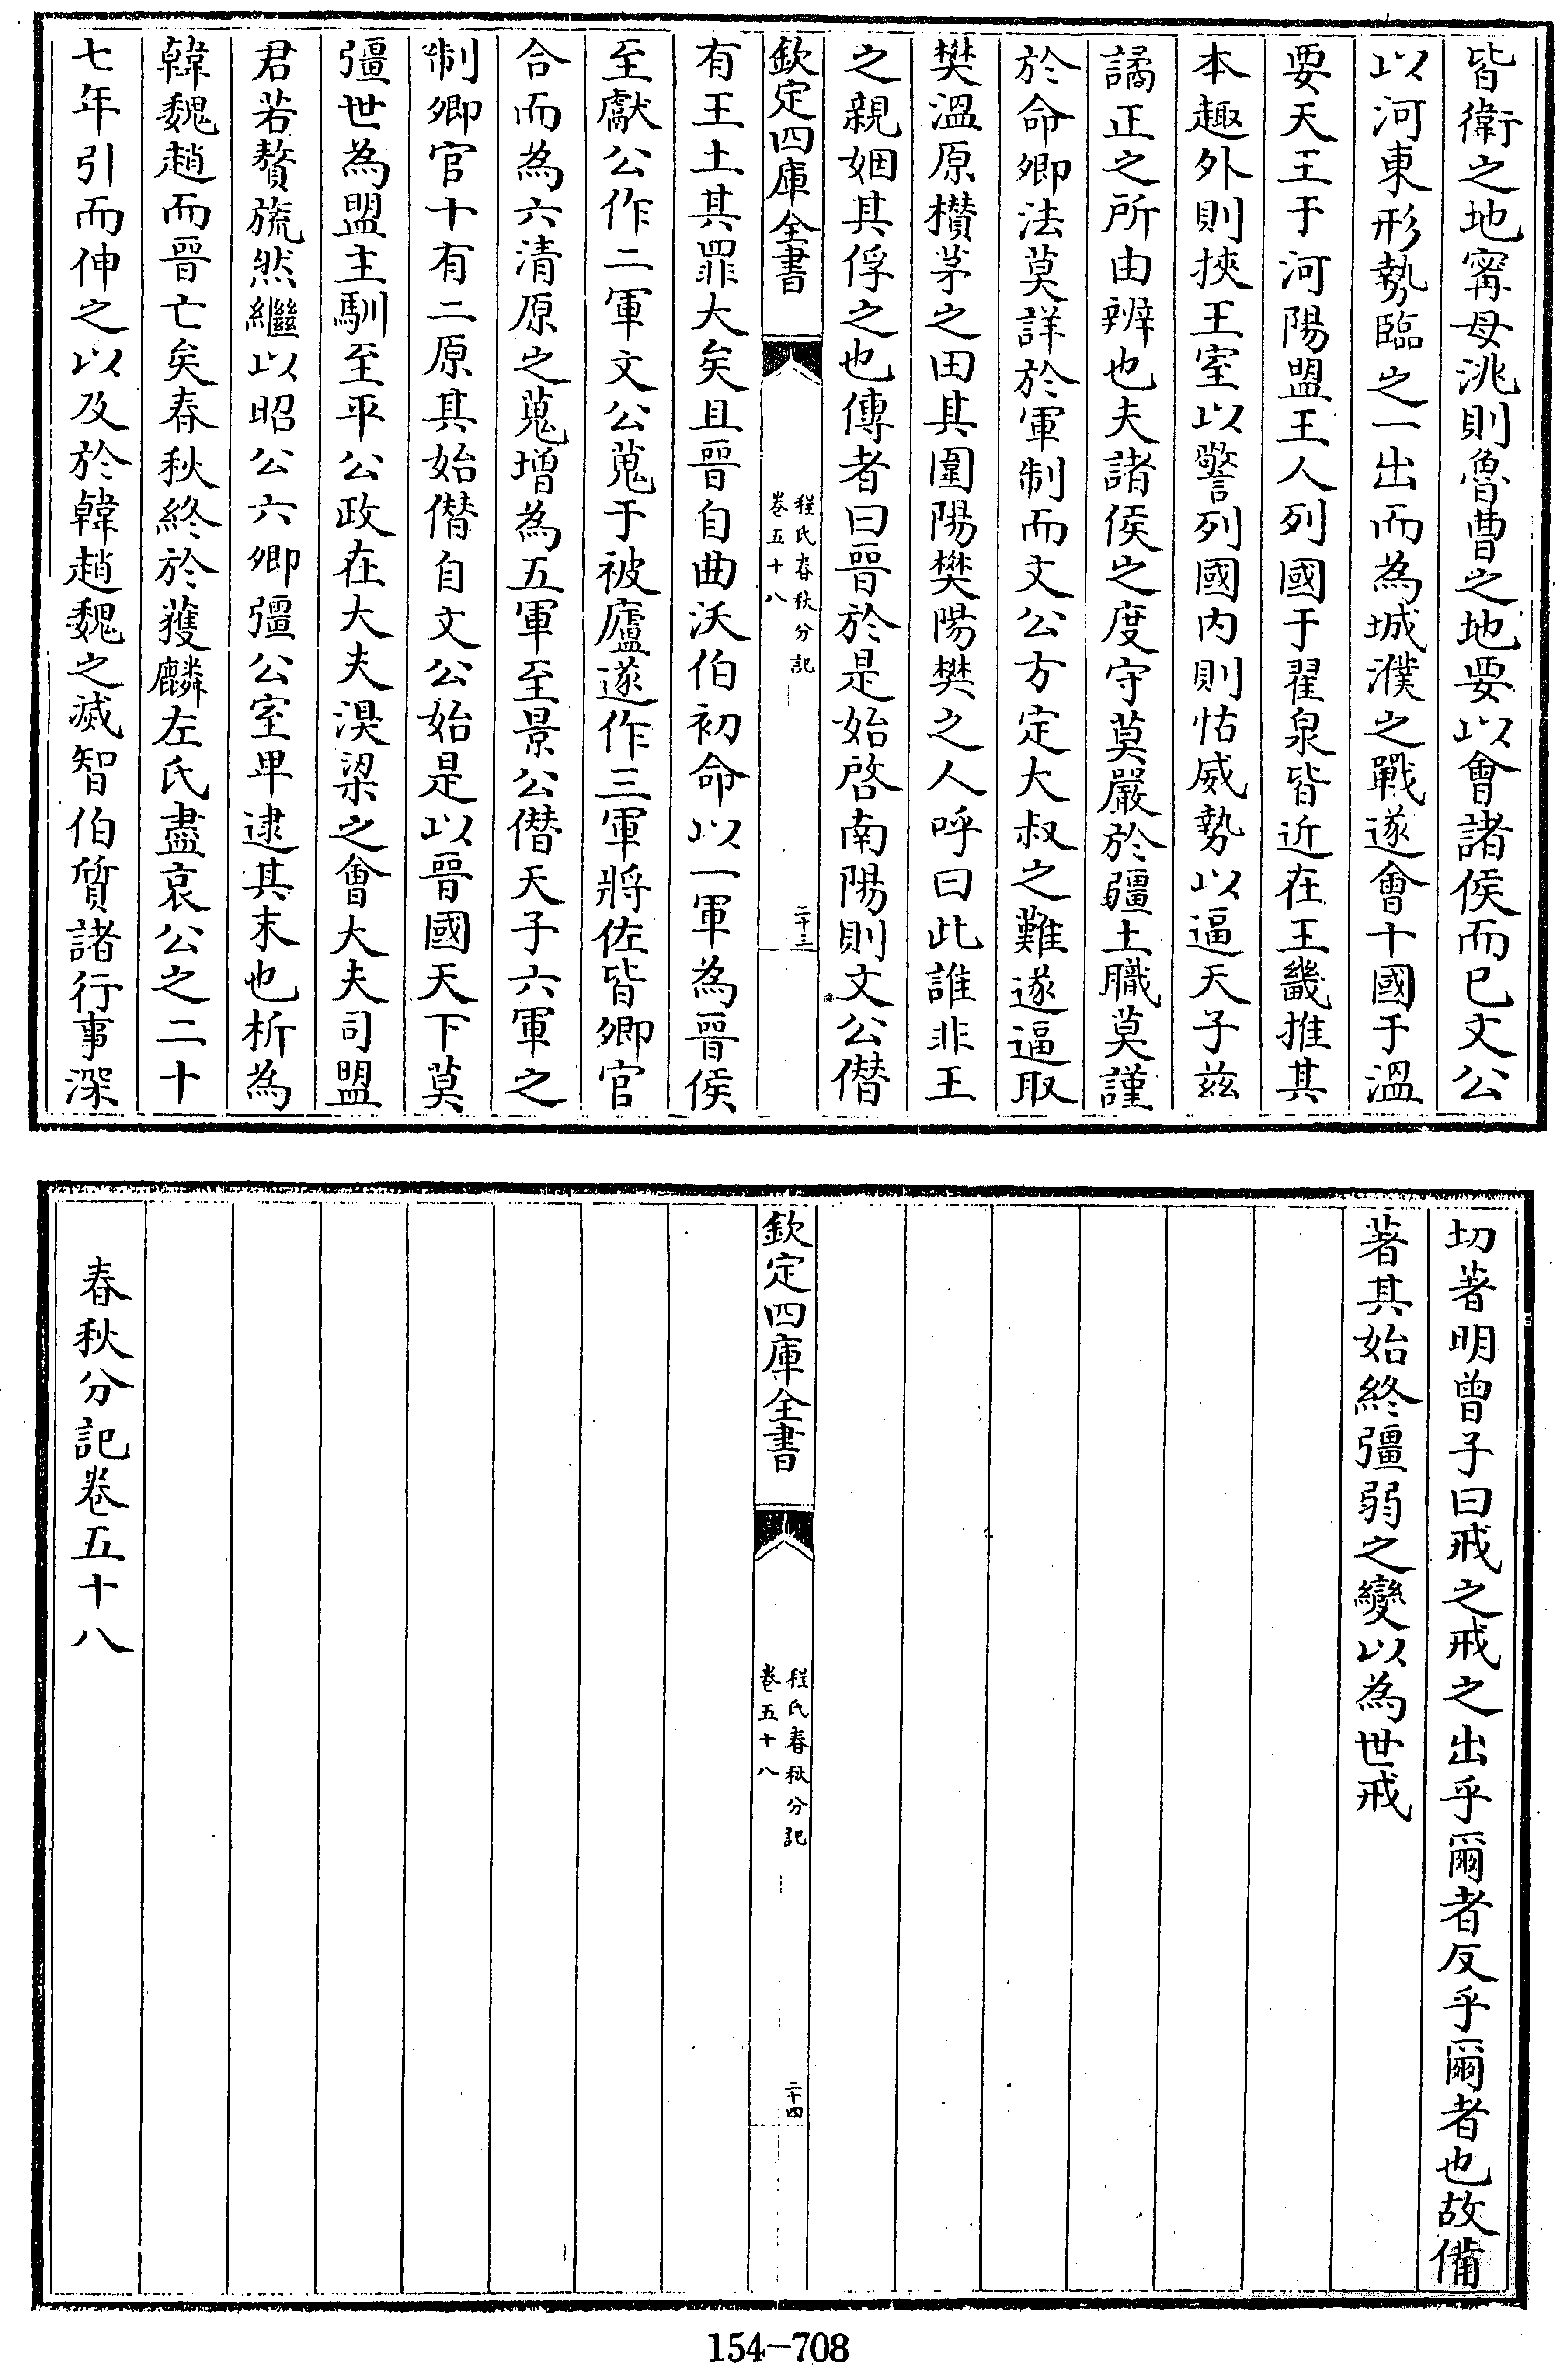 皆衛之地甯母洮則魯曹之地要以會諸侯而已文公
以河東形勢臨之一出而為城濮之戰遂會十國于溫
要天王于河陽盟王人列國于翟泉皆近在王畿推其
本趣外則挾王室以警列國内則怙威勢以逼天子茲
譎正之所由辨也夫諸侯之度守莫嚴於疆土職莫謹
於命卿法莫詳於軍制而文公方定大叔之難遂逼取
樊溫原櫕茅之田其圍陽樊陽樊之人呼曰此誰非王
之親姻其俘之也傳者曰晉於是始啓南陽則文公僭
欽定四庫全書
程氏春秋分記
卷五十八
二十三
有王土其罪大矣且晉自曲沃伯初命以一軍為晉侯
至獻公作二軍文公蒐于被廬遂作三軍將佐皆卿官
合而為六清原之蒐增為五軍至景公僭天子六軍之
制卿官十有二原其始僭自文公始是以晉國天下莫
彊世為盟主馴至平公政在大夫湨梁之會大夫司盟
君若贅旒然繼以昭公六卿彊公室卑逮其末也析為
韓魏趙而晉亡矣春秋終於獲麟左氏盡哀公之二十
七年引而伸之以及於韓趙魏之滅智伯質諸行事深
切著明曾子曰戒之戒之出乎爾者反乎爾者也故備
著其始終彊弱之變以為世戒
欽定四庫全書
程氏春秋分記
卷五十八
二十四
春秋分記卷五十八
154-708